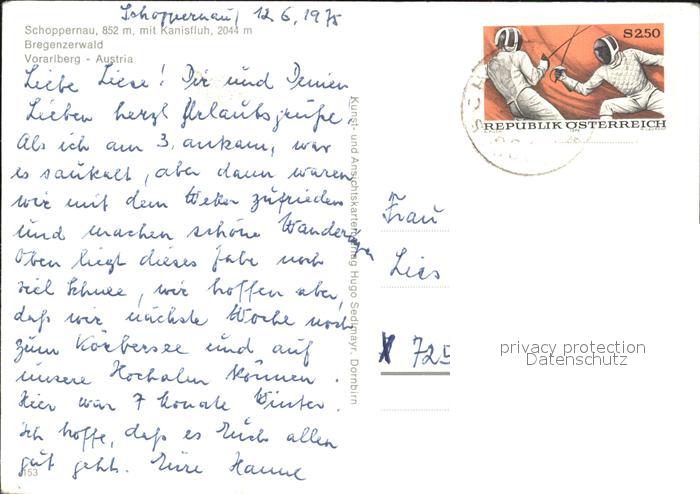 Schoppernau, 12.6.1975
Schoppernau, 852 m, mit Kanisfluh, 2044 m
Bregenzerwald
Vorarlberg - Austria
Liebe Liese! Dir und Deinen
Lieben herzl Urlaubsgrüße.
Als ich am 3. ankam, war
es saukalt, aber dann waren
wir mit dem Wetter zufrieden
und machen schöne Wanderungen
Oben liegt dieses Jahr noch
viel Schnee, wir hoffen aber,
daß wir nächste Woche noch
zum Körbersee und auf
unsere Hochalm können.
Hier war 7 Monate Winter.
Ich hoffe, daß es Euch allen
gut geht. Eure Hanne
153
Kunst- und Ansichtskartenverlag Hugo Sedlmayr, Dornbirn
S2.50
REPUBLIK ÖSTERREICH
Frau
Lies
725
privacy protection
Datenschutz